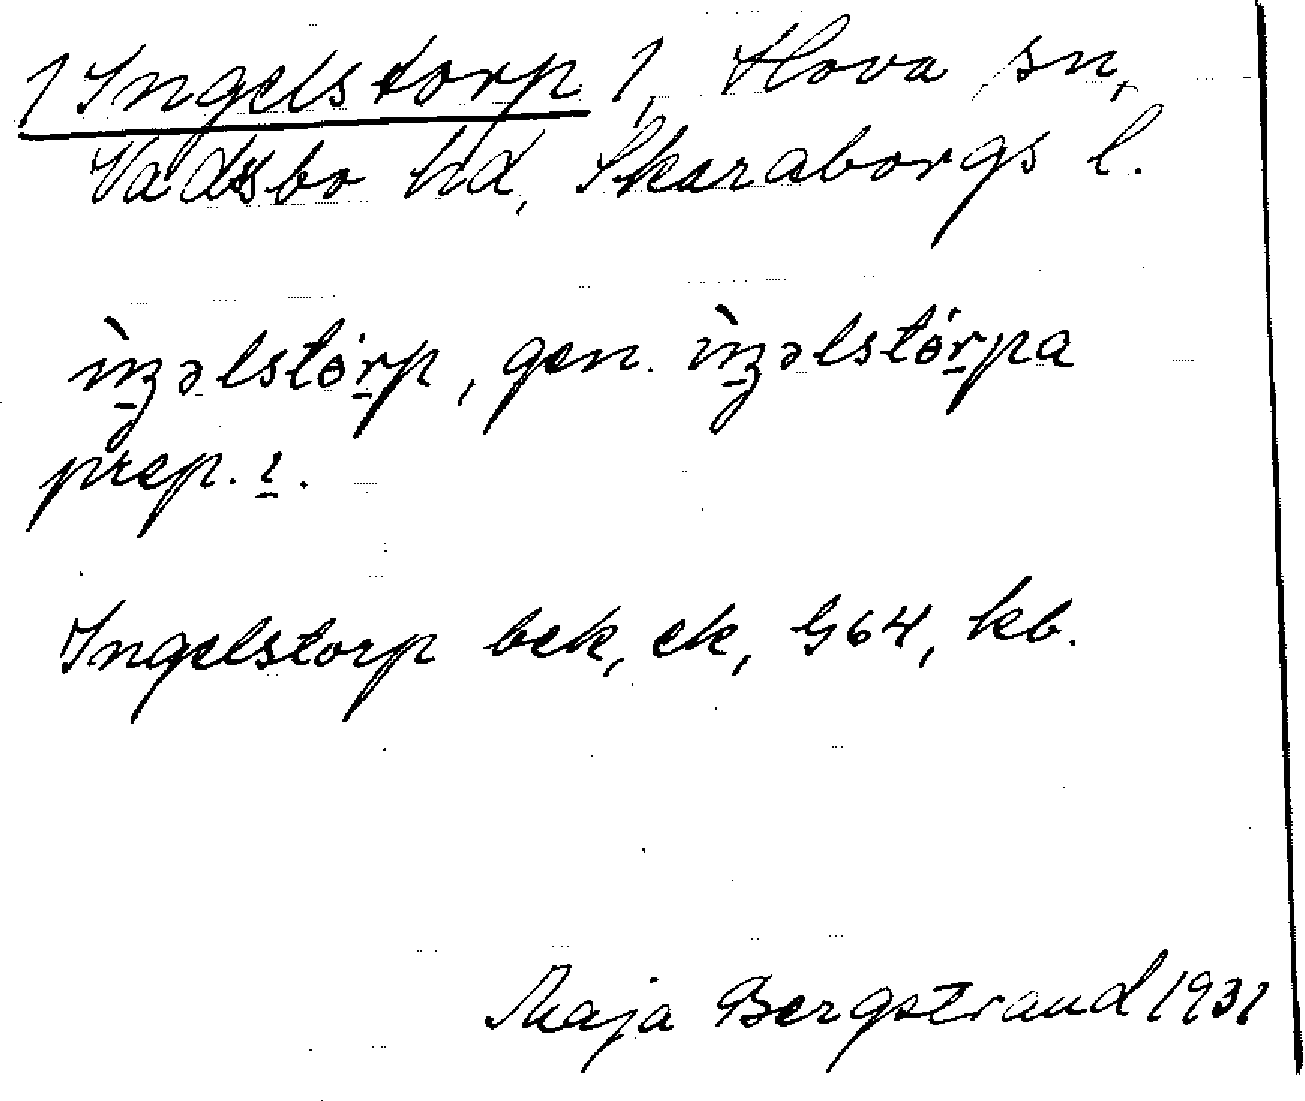 1 Ingelstorp 1, Hova sn,
Vadsbo hd, Skaraborgs l.
ìnʒəlstórp, gen. ìnʒəlstórpa
prep. ɩ.
Ingelstorp bek, ek, G64, kb.
Maja Bergstrand 1931